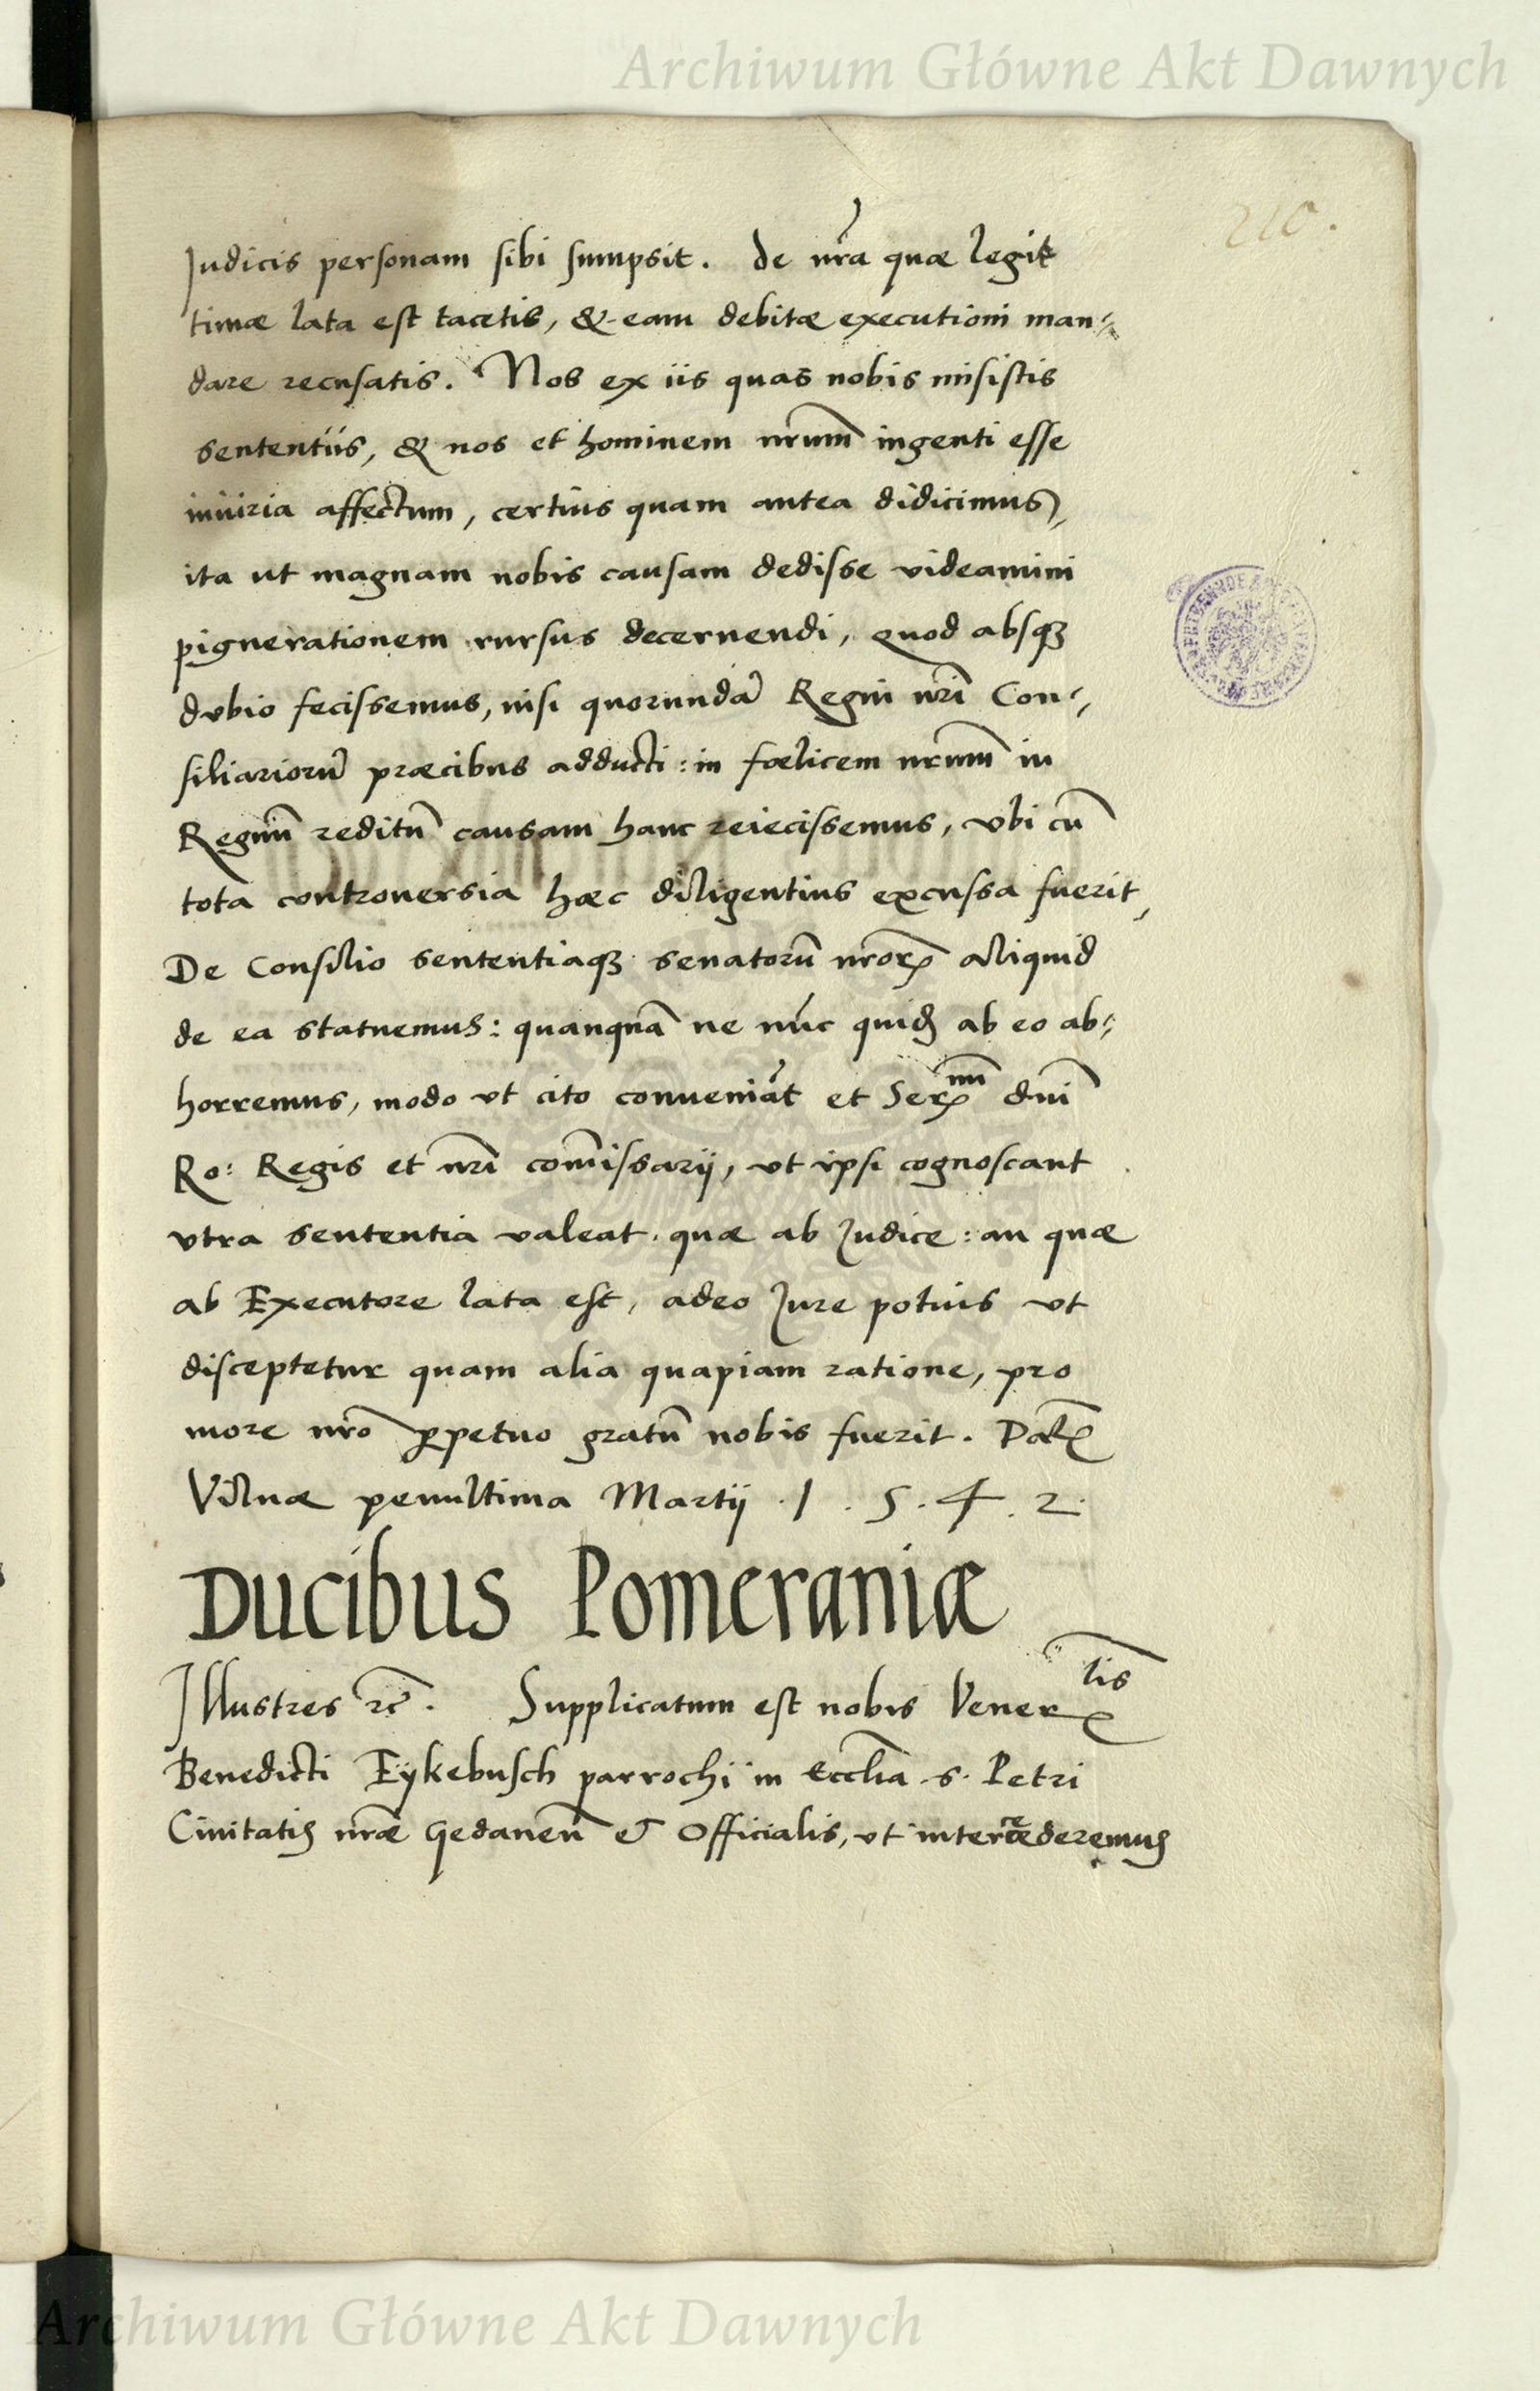 Archiwum Główne Akt Dawnych
210.
Iudicis personam sibi sumpsit. De nr̃a quæ legit
timæ lata est tacetis, & eam debitæ executioni man-
dare recusatis. Nos ex iis quas nobis misistis
sententiis, & nos et hominem nr̃um ingenti esse
iniuria affectum, certius quam antea didicimus,
ita ut magnam nobis causam dedisse videamini
pignerationem rursus decernendi, quod absqꝫ
dubio fecissemus, nisi quorundã Regni nr̃i Con-
siliariorũ præcibus adducti: in fœlicem nr̃um in
Regnũ reditũ causam hanc reiecissemus, vbi cũ
tota controuersia hæc diligentius excussa fuerit,
De Consilio sententiaqꝫ senatorũ nr̃orꝝ aliquid
de ea statuemus: quanquã ne nũc quidẽ ab eo ab-
horremus, modo vt cito conueniãt et Serᵐⁱ dñi
Ro: Regis et nr̃i com̃issarij, vt ipsi cognoscant
vtra sententia valeat, quæ ab Iudice: an quæ
ab Executore lata est, adeo Iure potius vt
disceptetur quam alia quapiam ratione, pro
more nr̃o ꝑpetuo gratũ nobis fuerit. Dat̃
Vilnæ penultima Martij .1.5.4.2.
Ducibus Pomeraniæ
Illustres rc̃. Supplicatum est nobis Venerˡⁱˢ
Benedicti Eykebusch parrochi in Eccl̃ia .s. Petri
Ciuitatis nr̃æ Gedaneñ & Officialis, vt intercæderemus
Archiwum Główne Akt Dawnych